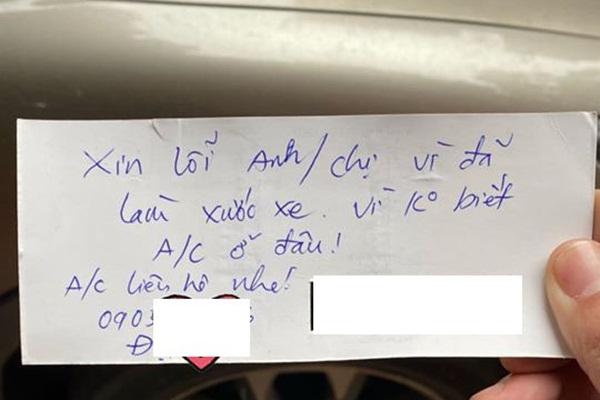 Xin lỗi Anh/chị vì đã
làm xước xe. vì ko biết
A/C ở đâu!
A/C liên hệ nhé!
0903